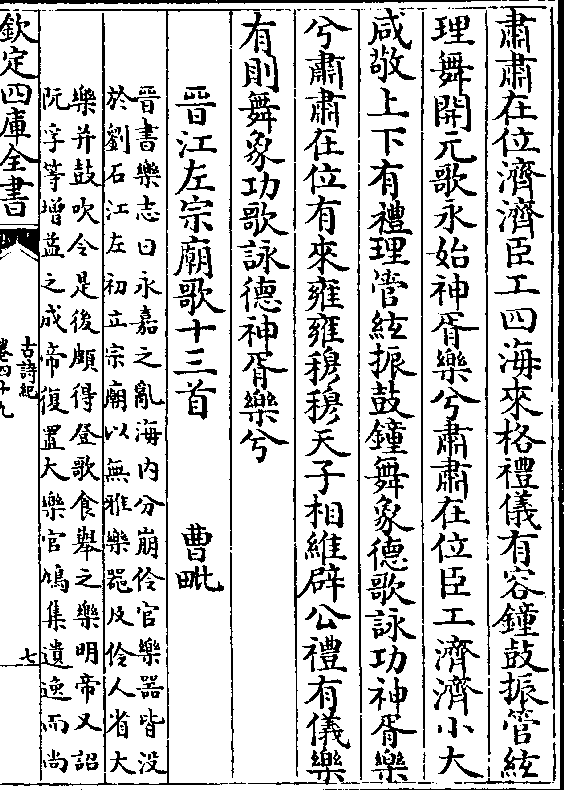 肅肅在位濟濟臣工四海來格禮儀有容鐘鼓振管絃
理舞開元歌永始神胥樂兮肅肅在位臣工濟濟小大
咸敬上下有禮理管絃振鼓鐘舞象德歌詠功神胥樂
兮肅肅在位有來雍雍穆穆天子相維辟公禮有儀樂
有則舞象功歌詠德神胥樂兮
晉江左宗廟歌十三首 曹毗
晉書樂志曰永嘉之亂海内分崩伶官樂器皆没
於劉石江左初立宗廟以無雅樂器及伶人省大
樂并鼓吹令是後頗得登歌食舉之樂明帝又詔
阮孚等增益之成帝復置大樂官鳩集遺逸而尚
欽定四庫全書
古詩紀
卷四十九
七